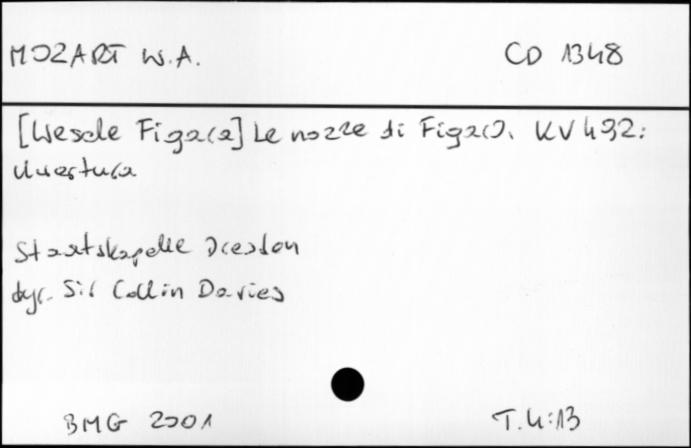 MOZART W.A. CD 1348
[Wesele Figara] Le nozze di Figaro. KV 492:
Uwertura
Staatskapelle Dresden
dyr. Sir Collin Davies
BMG 2001 T. 4:13